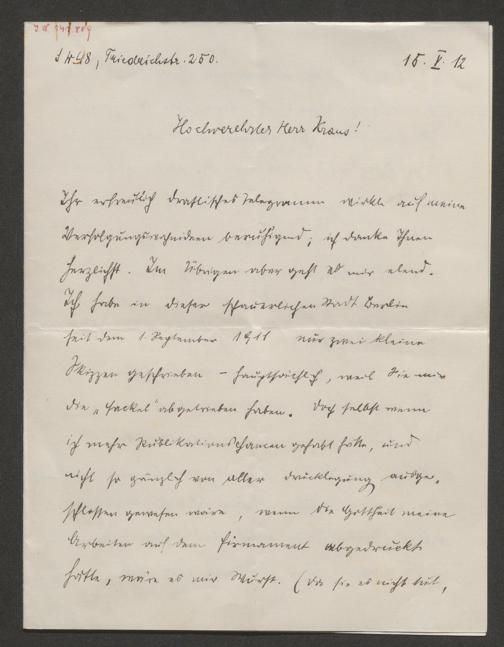 SW 48, Friedrichstr. 250. 15. V. 12
Hochverehrter Herr Kraus!
Ihr erfreulich drastisches Telegramm wirkte auf meine
Verfolgungswahnideen beruhigend; ich danke Ihnen
herzlichst. Im Übrigen aber geht es mir elend.
Ich habe in dieser schauerlichen Stadt Berlin
seit dem 1. September 1911 nur zwei kleine
Skizzen geschrieben – hauptsächlich, weil Sie mir
die „Fackel" abgetrieben haben. Doch selbst wenn
ich mehr Publikationschancen gehabt hätte, und
nicht so gänzlich von aller Drucklegung ausge-
schlossen gewesen wäre, wenn die Gottheit meine
Arbeiten auf dem Firmament abgedruckt
hätte, wäre es mir Wurst. (Da sie es nicht tut,